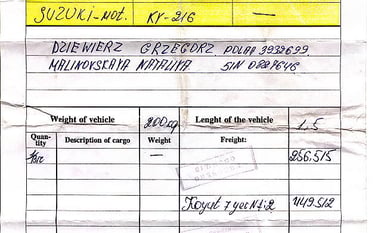 SUZUKI-MOT. KY-216 —
DZIEWIERZ GRZEGORZ POLAP 3932699
MALINOVSKAYA NATALIYA SIN 0227646
Weight of vehicle 200kg Lenght of the vehicle 1.5
Quan-tity Description of cargo Weight Freight:
— 256.515
449.512